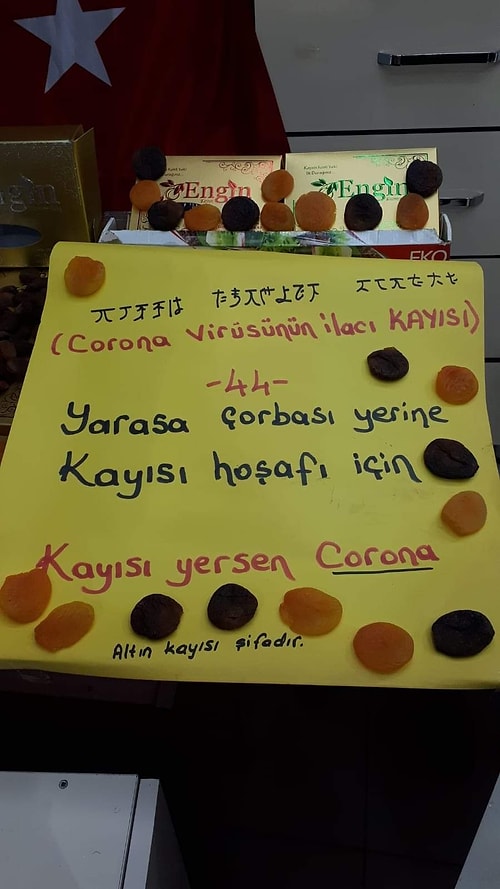 Engin
Engin
Engin
EKO
(Corona Virüsünün ilacı KAYISI)
-44-
Yarasa Çorbası yerine
Kayısı hoşafı için
Kayısı yersen Corona
Altın kayısı şifadır.